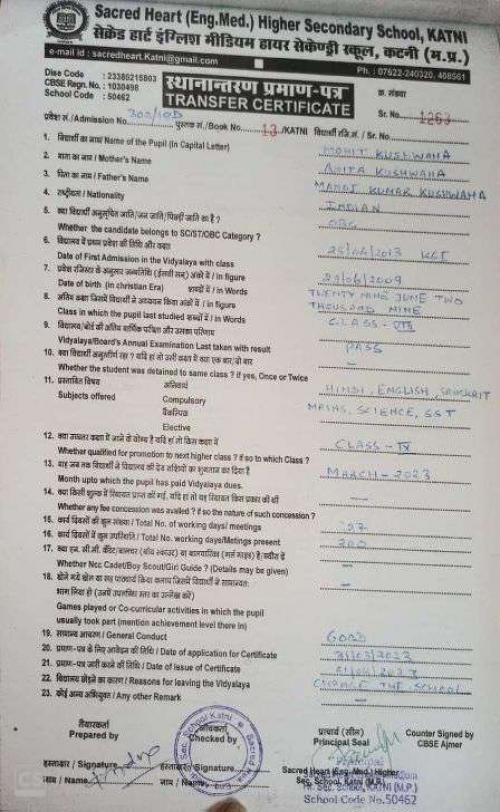 Sacred Heart (Eng.Med.) Higher Secondary School, KATNI
सेक्रेड हार्ट इंग्लिश मीडियम हायर सेकेण्ड्री स्कूल, कटनी (म.प्र.)
e-mail id : sacredheart.Katni@gmail.com
Ph. : 07622-240320, 408561
Dise Code : 23380215803
CBSE Regn. No. : 1030498
School Code : 50462
स्थानान्तरण प्रमाण-पत्र
TRANSFER CERTIFICATE
क्र. संख्या
Sr. No. 1263
प्रवेश सं./Admission No. 300/10D पुस्तक सं./Book No. 13 /KATNI विद्यार्थी रजि.सं. / Sr. No.
1. विद्यार्थी का नाम/ Name of the Pupil (In Capital Letter) MOHIT KUSHWAHA
2. माता का नाम / Mother's Name KUSHWAHA
3. पिता का नाम / Father's Name MANOJ KUMAR KUSHWAHA
4. राष्ट्रीयता / Nationality INDIAN
5. क्या विद्यार्थी अनुसूचित जाति/जन जाति/पिछड़ी जाति का है ? OBC
Whether the candidate belongs to SC/ST/OBC Category ?
6. विद्यालय में प्रथम प्रवेश की तिथि और कक्षा
Date of First Admission in the Vidyalaya with class 2013
7. प्रवेश रजिस्टर के अनुसार जन्मतिथि (ईसवी सन्) अंकों में / in figure 29/06/2009
Date of birth (in christian Era) शब्दों में / in Words TWENTY NINE JUNE TWO
THOUSAND NINE
8. अंतिम कक्षा जिसमें विद्यार्थी ने अध्ययन किया अंकों में / in figure
Class in which the pupil last studied शब्दों में / in Words CLASS - VIII
9. विद्यालय/बोर्ड की अंतिम वार्षिक परीक्षा और उसका परिणाम
Vidyalaya/Board's Annual Examination Last taken with result PASS
10. क्या विद्यार्थी अनुत्तीर्ण रहा ? यदि हां तो उसी कक्षा में क्या एक बार/दो बार
Whether the student was detained to same class ? if yes, Once or Twice –
11. प्रस्तावित विषय अनिवार्य HINDI, ENGLISH, SANSKRIT
Subjects offered Compulsory
वैकल्पिक MATHS, SCIENCE, SST
Elective
12. क्या उच्चतर कक्षा में जाने के योग्य है यदि हां तो किस कक्षा में
Whether qualified for promotion to next higher class ? if so to which Class ? CLASS - IX
13. माह जब तक विद्यार्थी ने विद्यालय की देय राशियों का भुगतान कर दिया है MARCH - 2023
Month upto which the pupil has paid Vidyalaya dues.
14. क्या किसी शुल्क में रियायत प्राप्त की गई, यदि हां तो वह रियायत किस प्रकार की थी –
Whether any fee concession was availed ? if so the nature of such concession ?
15. कार्य दिवसों की कुल संख्या / Total No. of working days/ meetings
16. कार्य दिवसों में कुल उपस्थिति / Total No. of working days/Metings present 200
17. क्या एन. सी. सी. कैडेट/बालचर (बॉय स्काउट) या बालचारिका (गर्ल गाइड) है/ब्यौरा दें –
Whether Ncc Cadet/Boy Scout/Girl Guide ? (Details may be given)
18. खेले गये खेल या सह पाठ्यचर्या क्रिया कलाप जिसमें विद्यार्थी ने सामान्यतः –
भाग लिया हो (उनमें उपलब्धि स्तर का उल्लेख करें)
Games played or Co-curricular activities in which the pupil
usually took part (mention achievement level there in)
19. सामान्य आचरण / General Conduct GOOD
20. प्रमाण-पत्र के लिए आवेदन की तिथि / Date of application for Certificate
21. प्रमाण-पत्र जारी करने की तिथि / Date of issue of Certificate
22. विद्यालय छोड़ने का कारण / Reasons for leaving the Vidyalaya CHANGE THE SCHOOL
23. कोई अन्य अभियुक्त / Any other Remark –
तैयारकर्ता
Prepared by
जाँचकर्ता
Checked by
प्राचार्य (सील)
Principal Seal
Counter Signed by
CBSE Ajmer
हस्ताक्षर / Signature
हस्ताक्षर / Signature
नाम / Name
नाम / Name
Sacred Heart (Eng.-Med.) Higher
Sec. School, Katni (M.P.)
Principal
Hr. Sec. School, KATNI (M.P.)
School Code No.50462